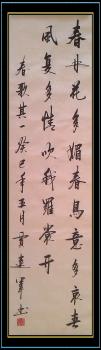 春林花多媚春鸟意多哀春
风复多情吹我罗裳开
春歌其一癸巳年五月